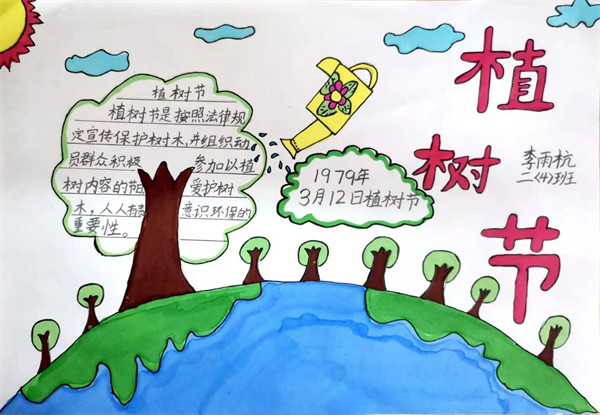 植树节
植树节是按照法律规
定宣传保护树木,并组织动
员群众积极 参加以植
树内容的节 爱护树
木,人人有 意识环保的
重要性。
1979年
3月12日植树节
植
树
节
李雨杭
二(4)班